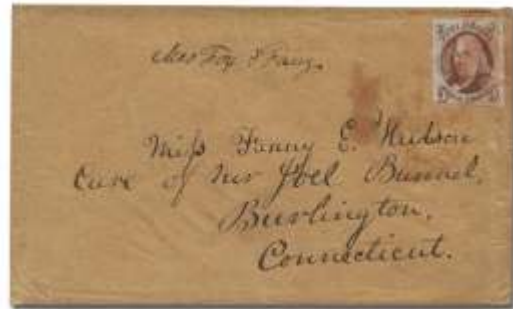 Miss Fanny E. Hudson
Care of Mr Joel Bunnel,
Burlington,
Connecticut.